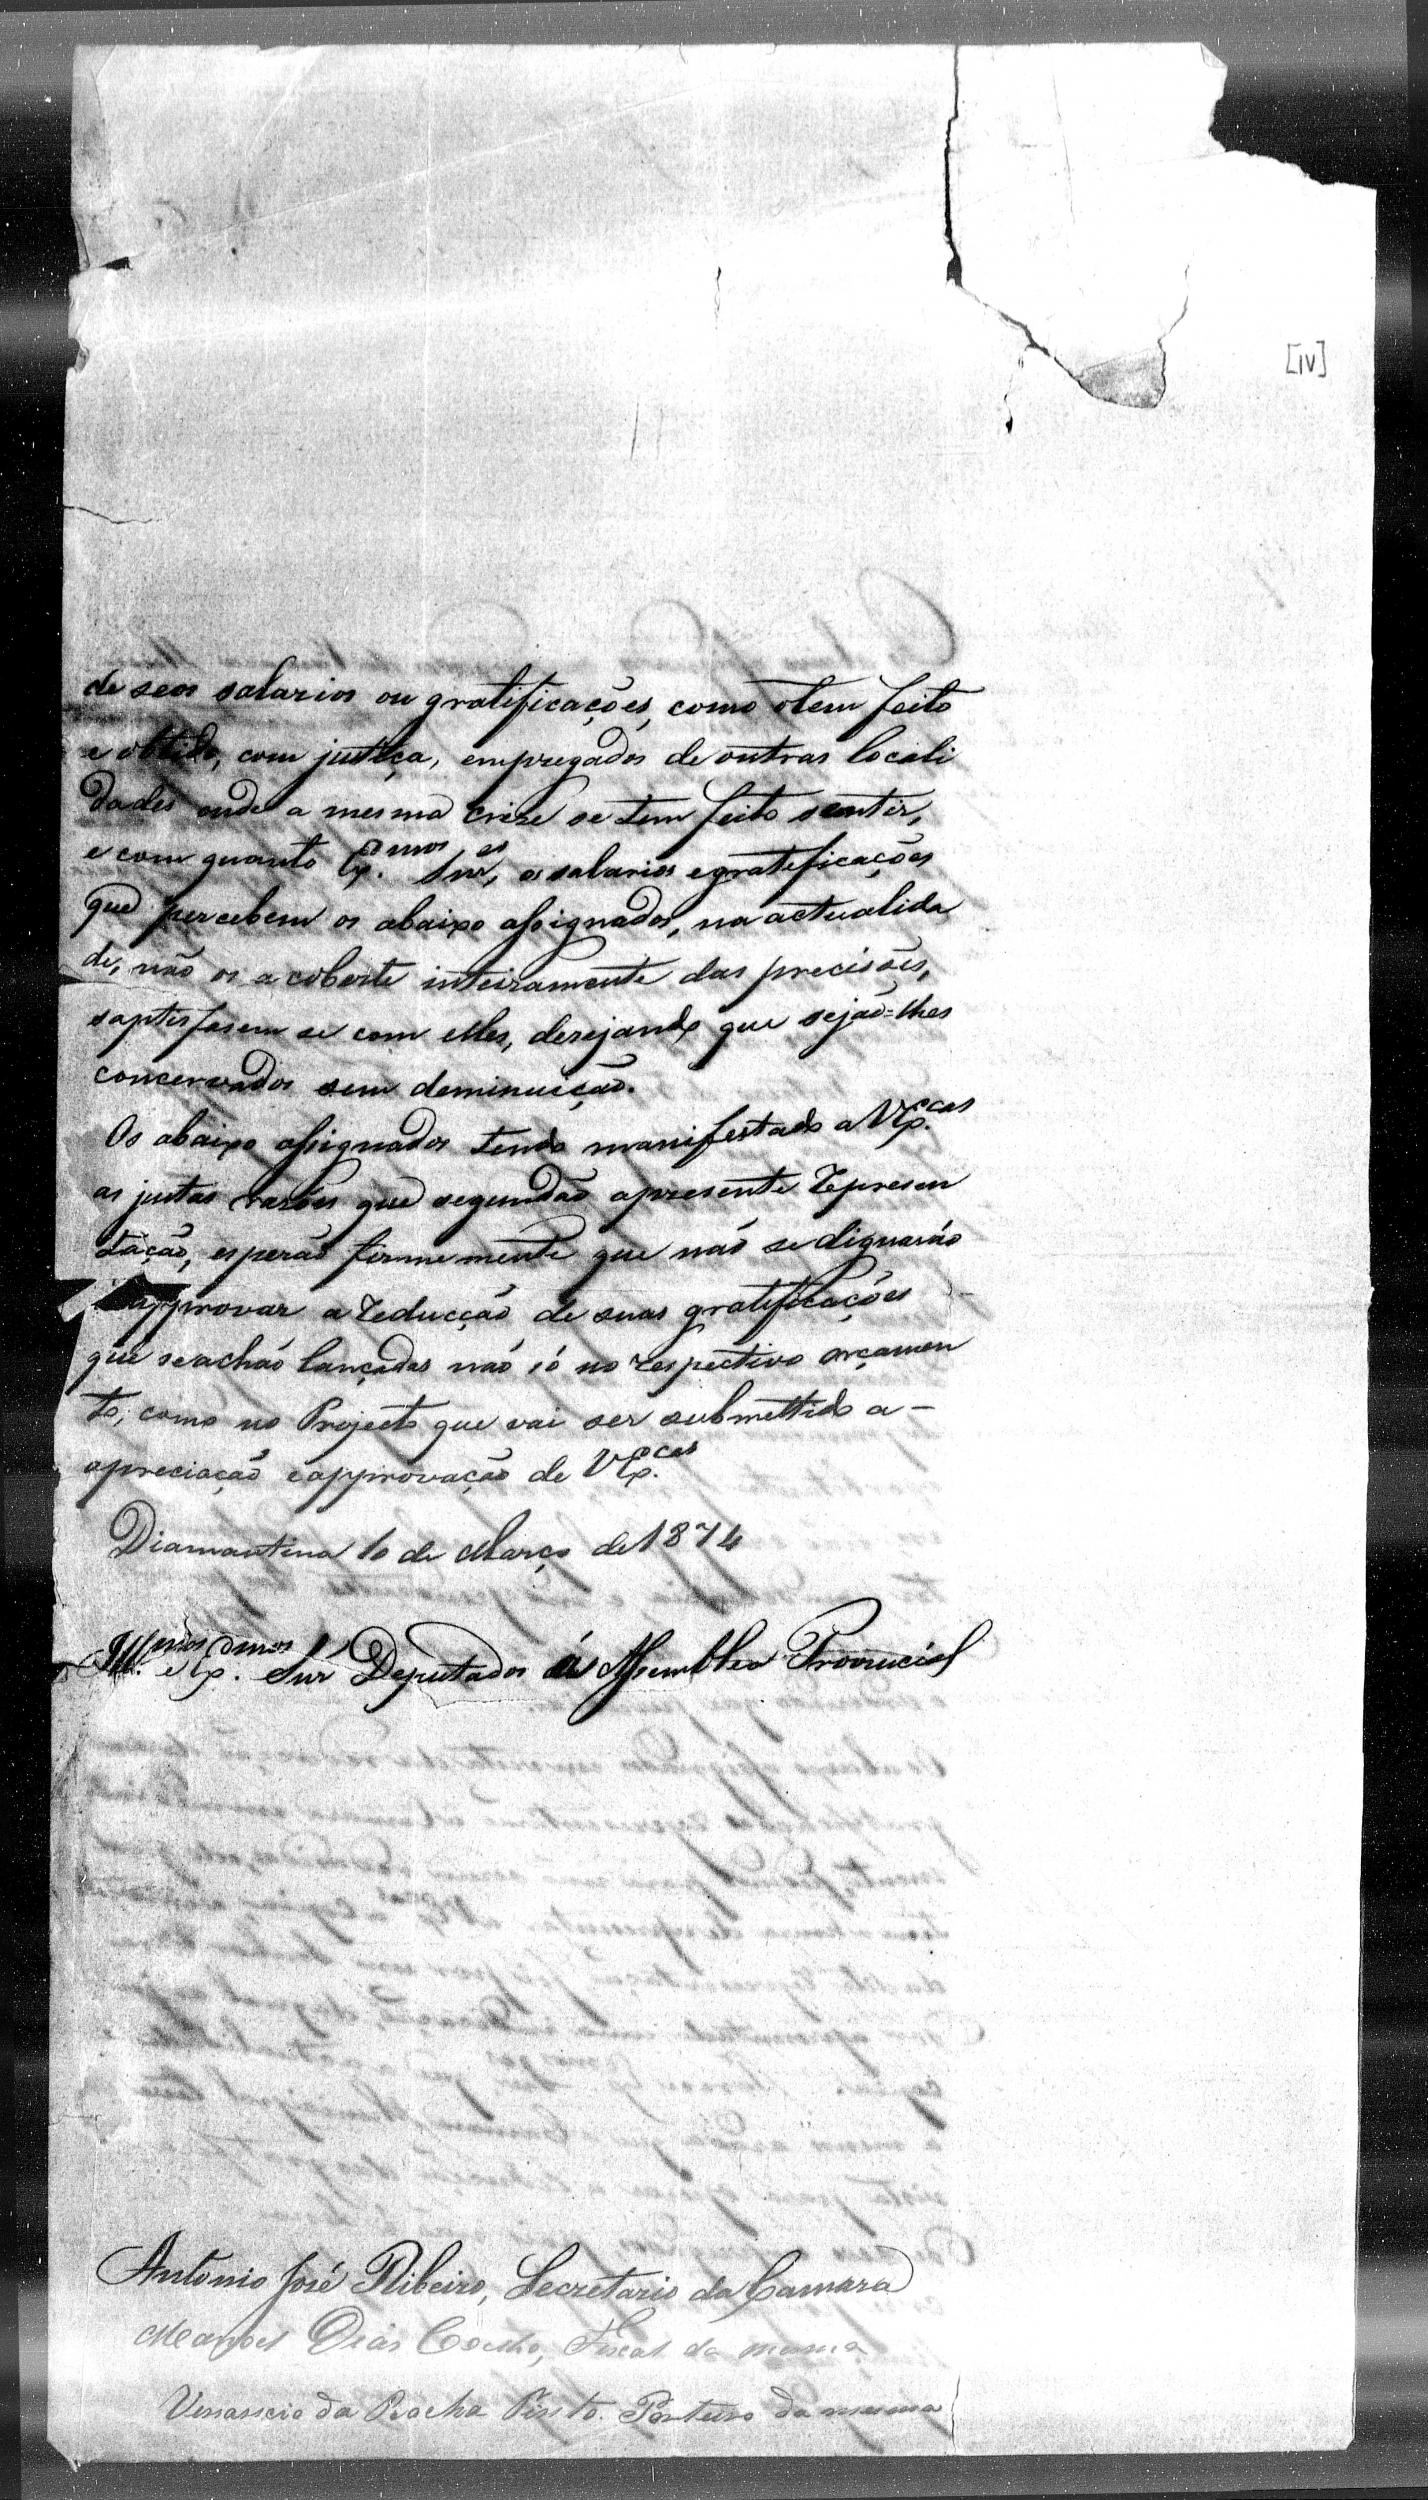 [IV]
de seos salarios ou gratificações, como otem feito
e obtido, com justiça, empregados de outras locali
dades onde a mesma crize se tem feito sentir,
e com quanto Ex.mos Snr.es, os salarios e gratificações
que percebem os abaixo assignados, na actualida
de, não os acoberte inteiramente das precisões,
saptisfasem se com elles, desejando que sejão-lhes
concervados sem deminuição.
Os abaixo assignados tendo manifestado a VEx.cas
as justas rasões que segundão apresente Represen
tação, esperão firmemente que não se dignarão
approvar a reducção de suas gratificações
que se achão lançadas não só no respectivo orçamen
to, como no Projecto que vai ser submettido a-
apreciação e approvação de VEx.cas
Diamantina 10 de Março de 1874
Ill.mos e Ex.mos Snrs Deputados á Assemblea Provincial
Antonio José Ribeiro, Secretario da Camara
Manoel Dias Coelho, Fiscal da mesma
Venancio da Rocha Pinto. Porteiro da mesma